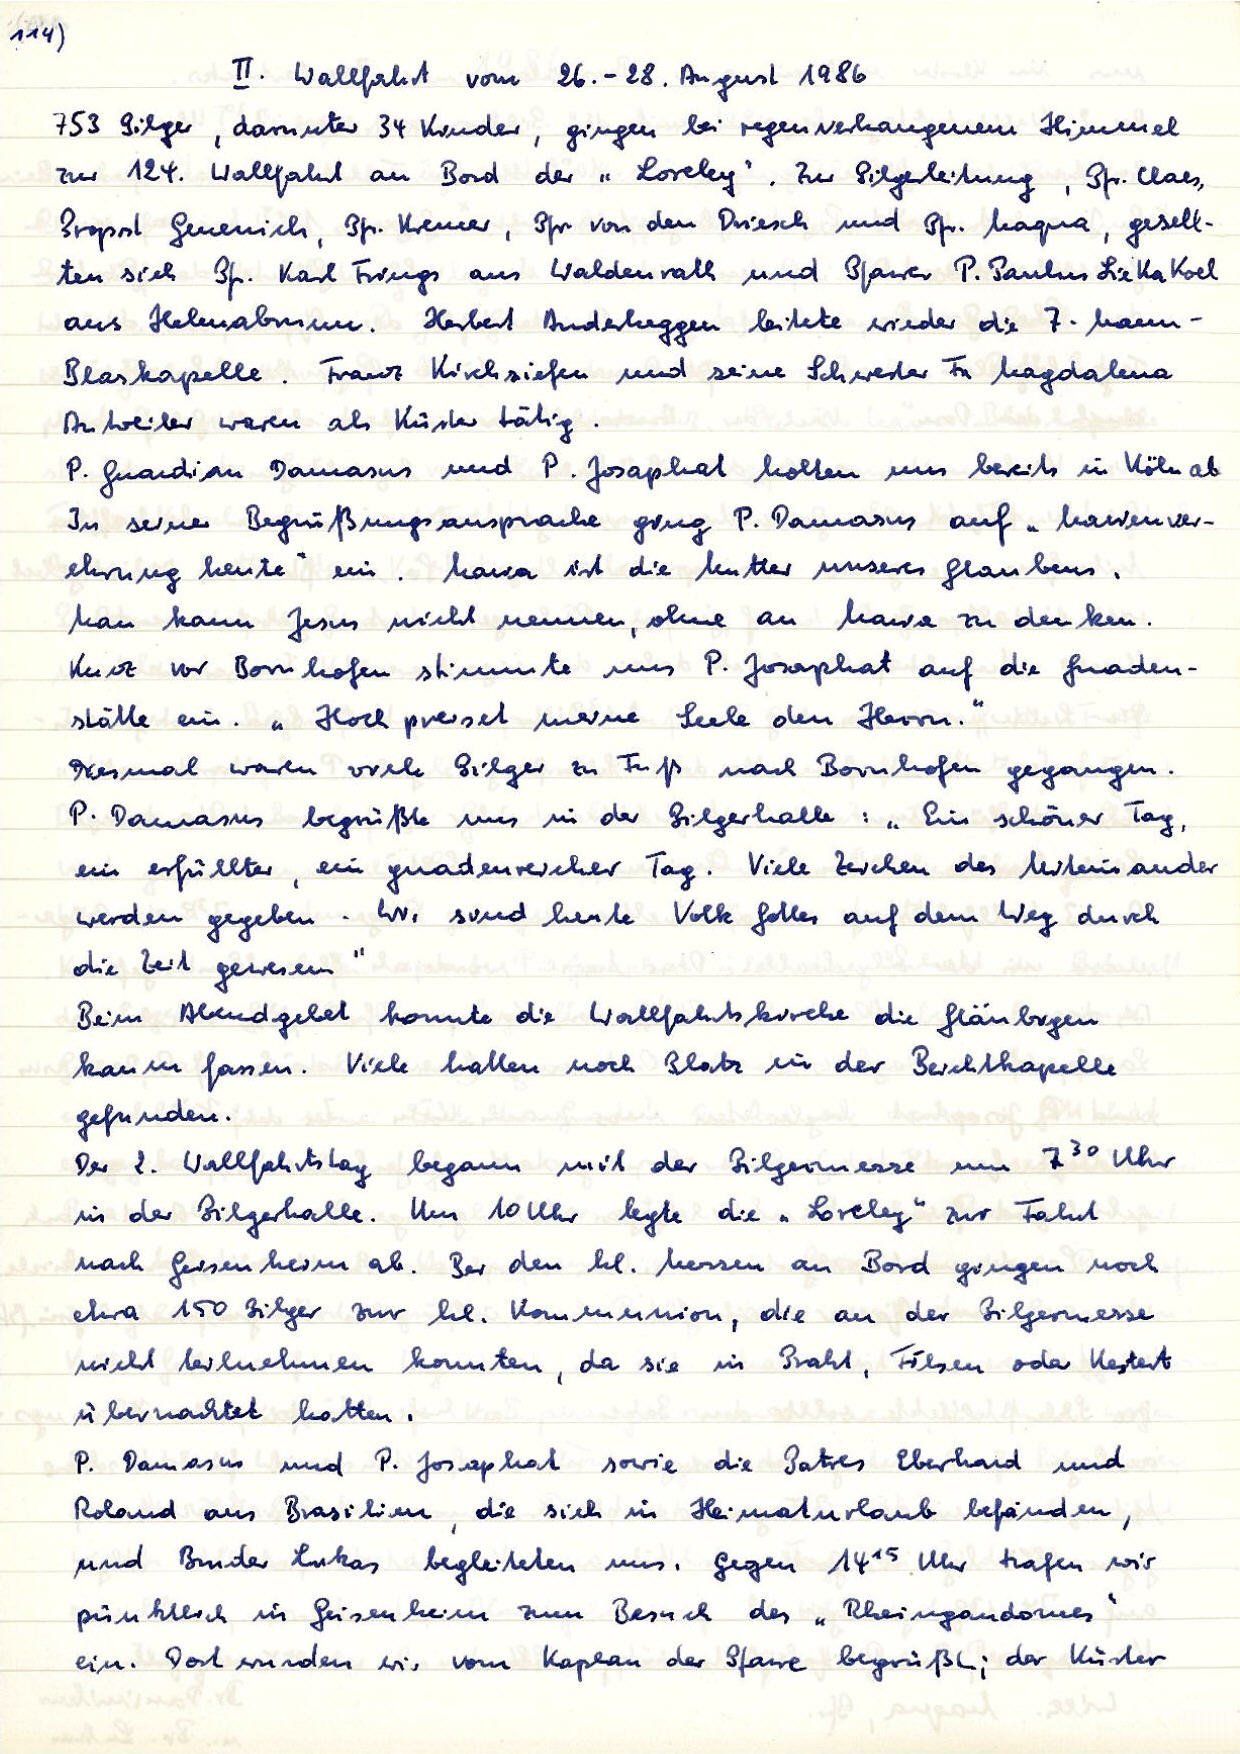 114)
II. Wallfahrt vom 26.-28. August 1986
753 Pilger, darunter 34 Kinder, gingen bei regenverhangenem Himmel
zur 124. Wallfahrt an Bord der „Loreley". Zur Pilgerleitung, Pfr. Claes,
Propst Genenich, Pfr. Kremer, Pfr von den Driesch und Pfr. Maqua, gesell-
ten sich Pfr. Karl Frings aus Waldenrath und Pfarrer P. Paulus
aus Helenabrunn. Herbert Anderheggen leitete wieder die 7-Mann-
Blaskapelle. Franz Kirchsiefen und seine Schwester Fr Magdalena
Antweiler waren als Küster tätig.
P. Guardian Damasus und P. Josaphat holten uns bereits in Köln ab
In seiner Begrüßungsansprache ging P. Damasus auf „Marienver-
ehrung heute" ein. Maria ist die Mutter unseres Glaubens.
Man kann Jesus nicht nennen, ohne an Maria zu denken.
Kurz vor Bornhofen stimmte uns P. Josaphat auf die Gnaden-
stätte ein. „Hoch preiset meine Seele den Herrn."
Diesmal waren viele Pilger zu Fuß nach Bornhofen gegangen.
P. Damasus begrüßte uns in der Pilgerhalle: „Ein schöner Tag,
ein erfüllter, ein gnadenreicher Tag. Viele Zeichen des Miteinander
werden gegeben. Wir sind heute Volk Gottes auf dem Weg durch
die Zeit gewesen"
Beim Abendgebet konnte die Wallfahrtskirche die Gläubigen
kaum fassen. Viele hatten noch Platz in der Beichtkapelle
gefunden.
Der 2. Wallfahrtstag begann mit der Pilgermesse um 7³⁰ Uhr
in der Pilgerhalle. Um 10 Uhr legte die „Loreley" zur Fahrt
nach Geisenheim ab. Bei den hl. Messen an Bord gingen noch
etwa 150 Pilger zur hl. Kommunion, die an der Pilgermesse
nicht teilnehmen konnten, da sie in Prath, Filsen oder Kestert
übernachtet hatten.
P. Damasus und P. Josaphat sowie die Patres Eberhard und
Roland aus Brasilien, die sich in Heimaturlaub befanden,
und Bruder Lukas begleiteten uns. Gegen 14¹⁵ Uhr trafen wir
pünktlich in Geisenheim zum Besuch des „Rheingaudomes"
ein. Dort wurden wir vom Kaplan der Pfarre begrüßt; der Küster